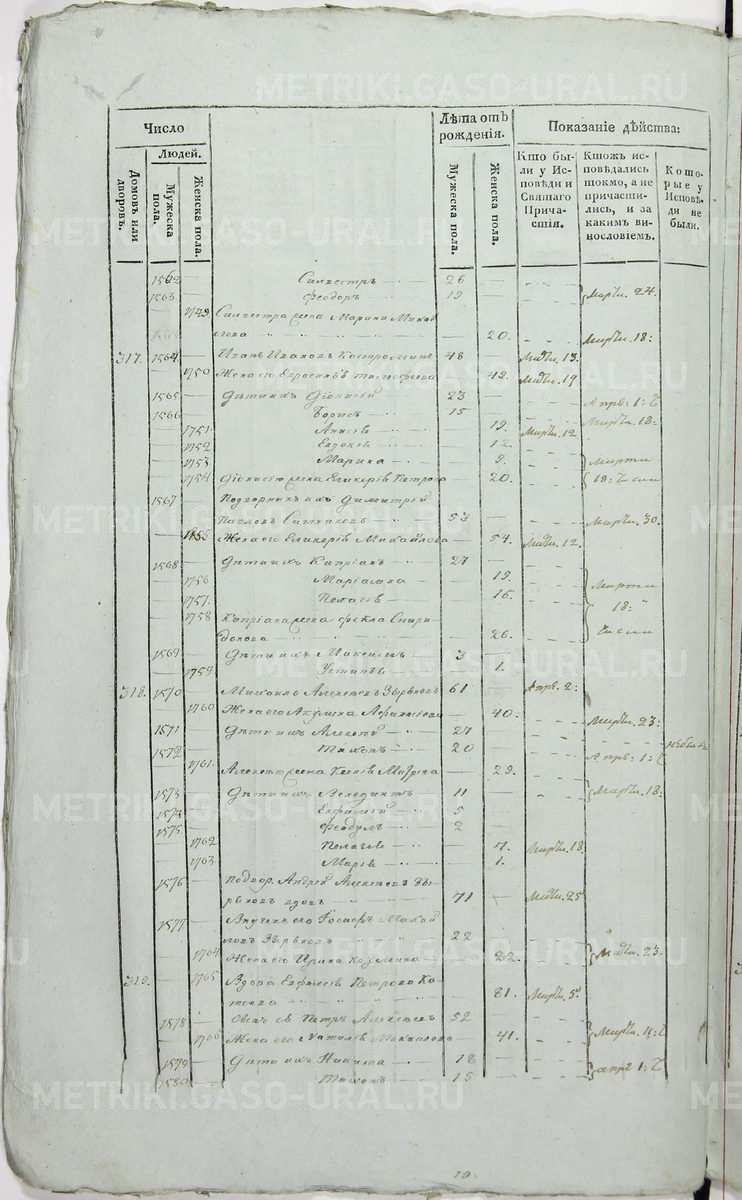 METRIKI.GASO-URAL.RU
Число
Лѣта отъ рожденія.
Показаніе дѣйства:
Людей.
Домовъ или дворовъ.
Мужеска пола.
Женска пола.
Мужеска пола.
Женска пола.
Кто были у Исповѣди и Святаго Причастія.
Ктожъ исповѣдались токмо, а не причастились, и за какимъ винословіемъ.
Которые у Исповѣди не были.
1562 — Силвестръ 26 —
1563 — Феодоръ 19 — Мартъ. 24.
— 1749 Силвестра жена Марина Михай
лова — 20. Мартъ. 18:
317. 1564 — Иванъ Ивановъ Костроминъ 48 — Мартъ. 13.
— 1750 Жена его Евросинія Тимофеева — 49. Мартъ. 19
1565 — Дѣти ихъ Діонисій 23 — Апрѣ: 1:
1566 — Борисъ 15 — Мартъ. 18:
— 1751. Анисія — 19. Мартъ. 12
— 1752 Евдокія — 12.
— 1753 Марина — 9. Марта
— 1754 Діонисію жена Гликерія Петрова — 20. 18:
1567 — Подворникъ ихъ Димитрій
Павловъ Ситниковъ 53 — Мартъ. 30.
— 1755 Жена его Гликерія Михайлова — 54. Мартъ. 12.
1568 — Дѣти ихъ Кипріанъ 27 —
— 1756 Маріамна — 19. Марта
— 1757. Пелагія — 16. 18:
— 1758 Кипріана жена Фекла Спири
донова — 26.
1569 — Дѣти ихъ Максимъ 3 —
— 1759 Устинія — 1.
318. 1570 — Михайло Алексѣевъ Зырѣновъ 61 — Апрѣ. 2:
— 1760 Жена его Акулина Афанасіева — 40. Мартъ. 23:
1571 — Дѣти ихъ Алексѣй 27 —
1572 — Тихонъ 20 — Апрѣ: 1: небылъ
— 1761. Алексѣя жена Ксенія — 29.
1573 — Дѣти ихъ Венедиктъ 11 — Мартъ. 18:
1574 — Евфимій 5 —
1575 — Феодулъ 2 —
— 1762 Пелагія — 7. Мартъ. 18
— 1763. Марія — 1.
1576 — Подвор. Андрей Алексѣевъ Зы
рѣновъ вдовъ 71 — Мартъ. 25
1577 — Внучикъ его Іосифъ Михай
ловъ Зырѣновъ 22 —
— 1764 Жена его Ирина Козмина — 22. Мартъ. 23.
319. — 1765 Вдова Евфимія Петрова Ка
— 81. Мартъ. 5
1578 — Сынъ ея Петръ Алексѣевъ 52
— 1766 Жена его Наталія Михайлова — 41. Мартъ. 18:
1579 — Дѣти ихъ Никита 18 — апрѣ 1:
1580 — Тихонъ 15 —